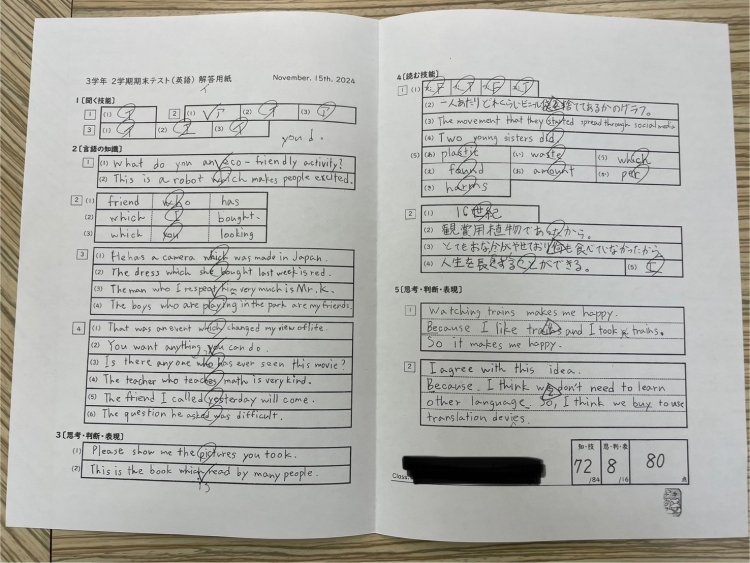 3学年 2学期期末テスト(英語) 解答用紙 November, 15th, 2024
1[聞く技能]
1 (1) 2 (1) (2) (3)
3 (1) (2) (3)
you d.
2[言語の知識]
1 (1) What do you an eco-friendly activity?
(2) This is a robot which makes people excited.
2 (1) friend who has
(2) which I bought.
(3) which you looking
3 (1) He has a camera which was made in Japan.
(2) The dress which she bought last week is red.
(3) The man who I respect him very much is Mr. K.
(4) The boys who are playing in the park are my friends.
4 (1) That was an event which changed my view of life.
(2) You want anything you can do.
(3) Is there anyone who has ever seen this movie?
(4) The teacher who teaches math is very kind.
(5) The friend I called yesterday will come.
(6) The question he asked was difficult.
3[思考・判断・表現]
(1) Please show me the pictures you took.
(2) This is the book which read by many people.
is
4[読む技能]
1 (1)
(2) 一人あたりどれくらいビニール袋を捨ててあるかのグラフ。
(3) The movement that they started spread through social media
(4) Two young sisters did
(5) (あ) plastic (い) waste (う) which
(え) found (お) amount (か) per
(き) harms
2 (1) 16世紀
(2) 観賞用植物であったから。
(3) とてもおなかがやせており何も食んでいなかったから
(4) 人生を長きすることができる。 (5)
5[思考・判断・表現]
1 Watching trains makes me happy.
Because I like trains and I took trains.
So it makes me happy.
2 I agree with this idea.
Because. I think we don't need to learn
other language. So, I think we buy to use
translation devies.
Class:
知・技 思・判・表
72 /84 8 /16 80 点